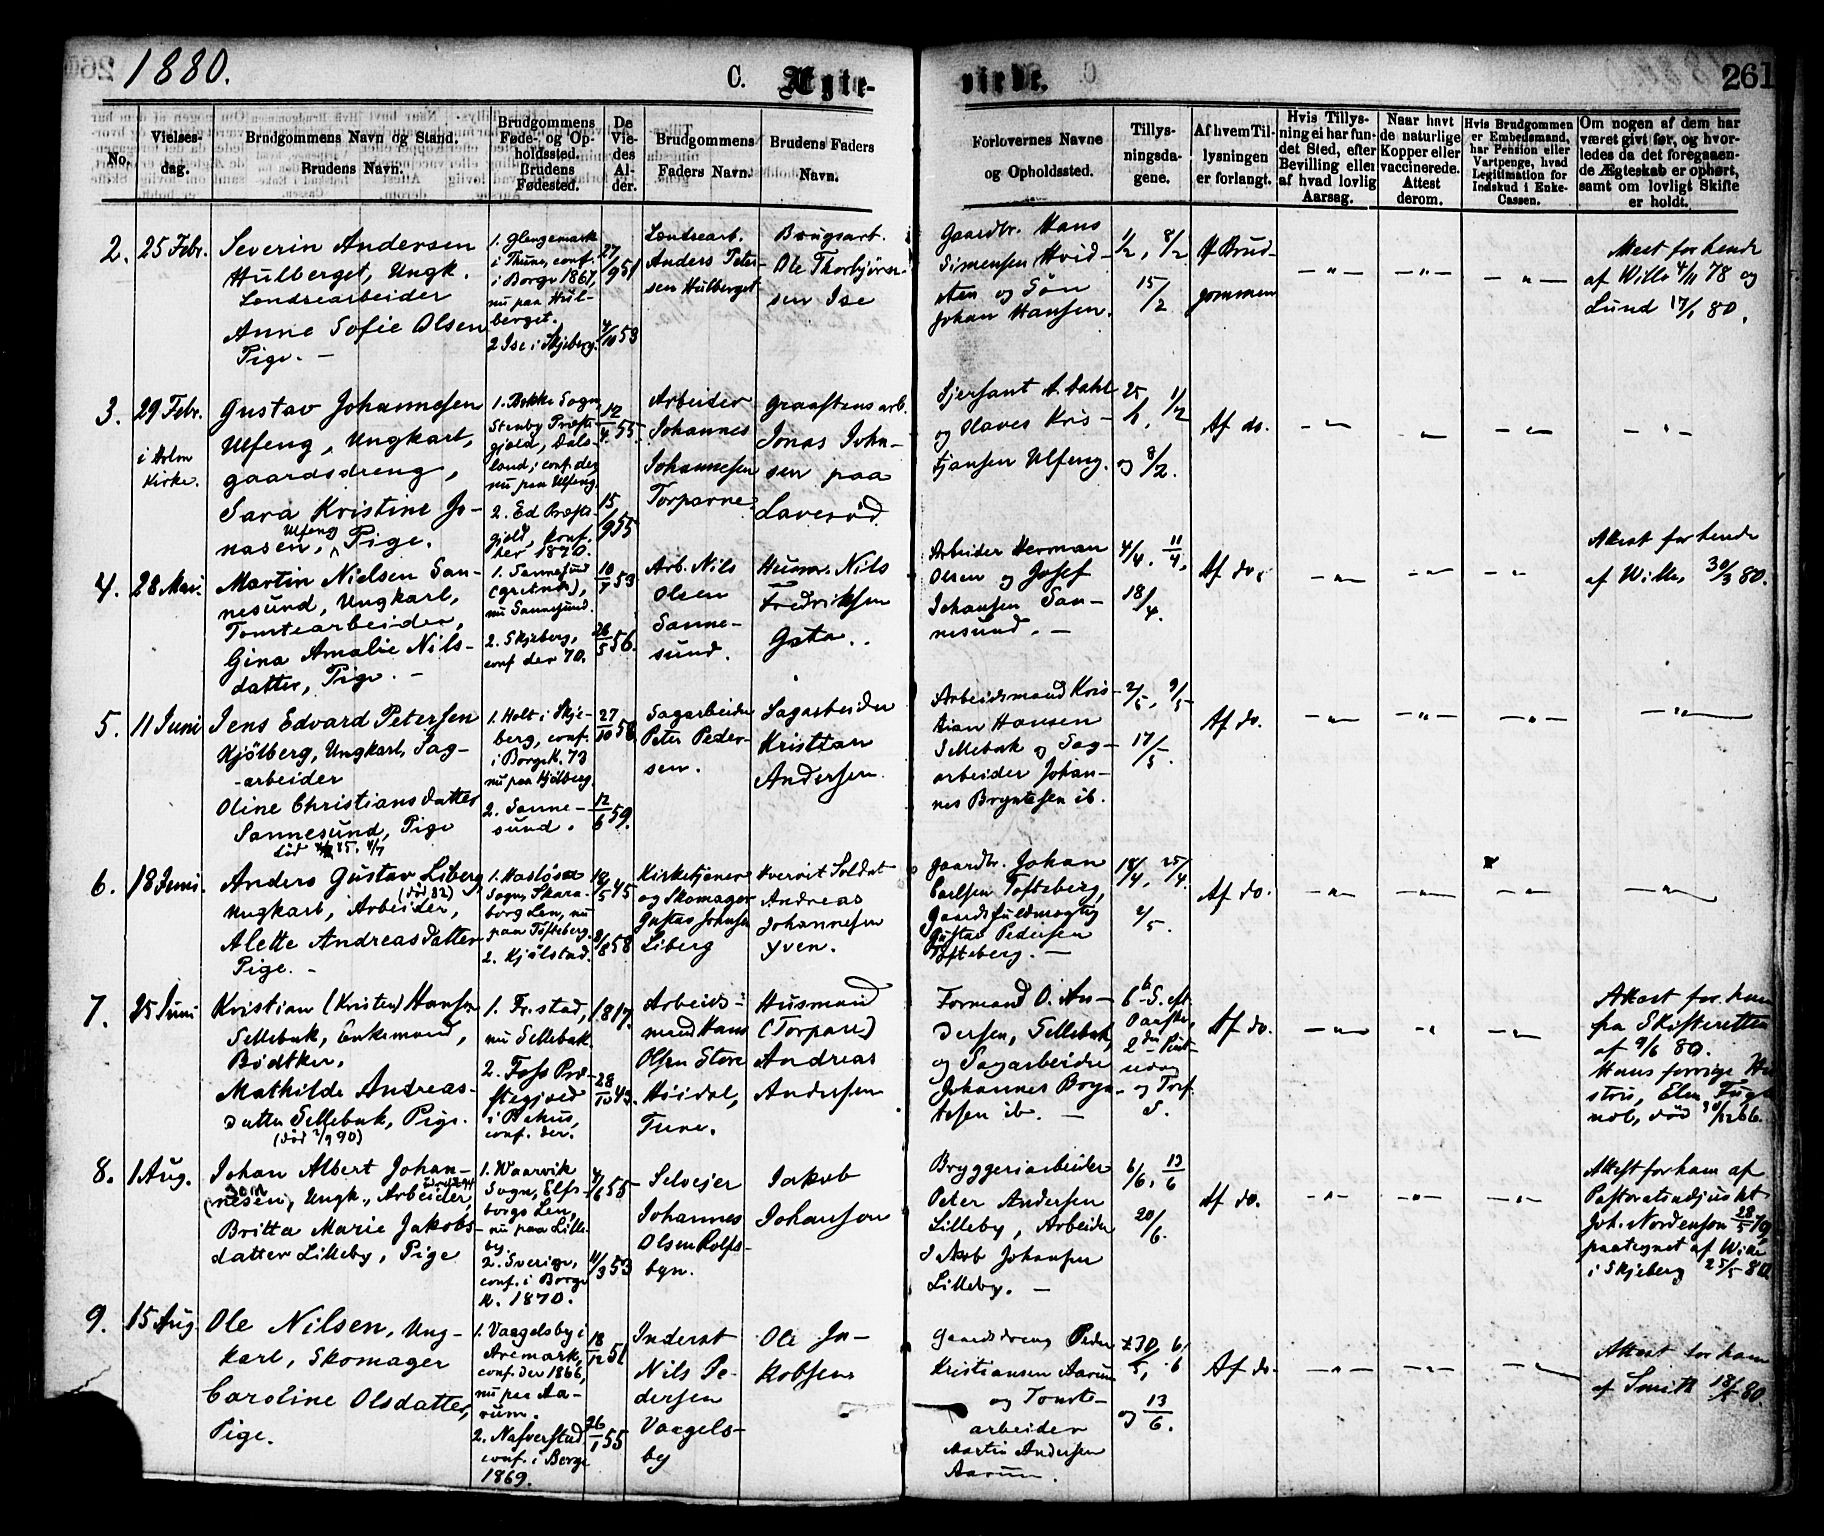 1880.
C. Ægte-
vielde.
261
No.
Vielses-
dag.
Brudgommens Navn og Stand.
Brudens Navn.
Brudgommens
Føde- og Op-
holdssted.
Brudens
Fødested.
De
Vie-
des
Al-
der.
Brudgommens
Faders Navn.
Brudens Faders
Navn.
Forlovernes Navne
og Opholdssted.
Tillys-
ningsda-
gene.
Af hvem Til-
lysningen
er forlangt.
Hvis Tillys-
ning ei har fun-
det Sted, efter
Bevilling eller
af hvad lovlig
Aarsag.
Naar havt
de naturlige
Kopper eller
vaccinerede.
Attest
derom.
Hvis Brudgommen
er Embedsmand,
har Pension eller
Vartpenge, hvad
Legitimation for
Indskud i Enke-
Cassen.
Om nogen af dem har
været givt før, og hvor-
ledes da det foregaaen-
de Ægteskab er ophørt,
samt om lovligt Skifte
er holdt.
2.
25 Febr.
Severin Andersen
Hulberget, Ungk.
Løndrearbeider
Anne Sofie Olsen
Pige. –
1. Glengemark
i Thune, conf.
i Borge 1867,
nu paa Hul-
berget.
2 Ise i Skjeberg.
27/9 51
4/10 53
Løndrearb.
Anders Peter-
sen Hulberget
Brugsarb.
Ole Thorbjörn-
sen Ise
Gaardbr. Hans
Simensen Hvid-
sten og Søn
Johan Hansen.
1/2, 8/2
15/2
Af Brud-
gommen
–"–
–"–
–"–
Attest for hende
af Wille 4/11 78 og
Lund 17/1 80.
3.
29 Febr.
i Holm
Kirke.
Gustav Johannesen
Ulfeng, Ungkarl,
gaardsdreng,
Sara Kristine Jo-
nasen, Ulfeng Pige.
1. Bekke Sogn,
Stenby Præste-
gjeld, Dals-
land, conf. der,
nu paa Ulfeng.
2. Ed Præste-
gjeld, konf.
der 1870.
12/4 55.
15/9 55
Arbeider
Johannes
Johannesen
Torparne
Graastensarb.
Jonas John-
sen paa
Laverød
Sjersant A. Dahl
og Olaves Kris-
tjansen Ulfeng.
25/1, 1/2
og 8/2.
Af do.
–"–
–"–
–"–
–"–
4.
28 Mai.
Martin Nielsen San-
nesund, Ungkarl,
Tomtearbeider,
Gina Amalie Nils-
datter, Pige. –
1. Sannesund
nu Sannesund.
2. Skjeberg,
conf der 70.
26/5 56.
Arb. Nils
Olsen
Sanne-
sund.
Husm. Nils
Fredriksen
Gata.
Arbeider Herman
Olsen og Josef
Johansen San-
nesund. –
4/4, 11/4,
18/4.
Af do.
–"–
–"–
–"–
Attest for hende
af Wille, 30/3 80.
5.
11 Juni
Jens Edvard Petersen
Kjölberg, Ungkarl, Sag-
-arbeider
Oline Christiansdatter
Sannesund, Pige
1. Holt i Skje-
berg, conf.
i Borge K. 73
nu paa Kjölberg
2. Sanne-
sund.
27/10 58
12/6 59.
Sagarbeider
Peter Peder-
sen.
Sagarbeider
Kristian
Andersen
Arbeidsmand Kris-
tian Hansen
Sellebak og Sag-
arbeider Johan-
nes Bryntesen ib.
2/5, 9/5
17/5.
Af do.
–"–
–"–
–"–
–"–
6.
18 Juni.
Anders Gustav Liberg
(död 82)
Ungkarl, Arbeider,
Alette Andreasdatter
Pige. –
Sogn, Skara-
borg Len, nu
paa Tofteberg.
2. Kjölstad.
Kirketjener
og Skomager
Gustav Johnsen
Liberg
Hvervet Soldat
Andreas
Johannesen
Yven.
Gaardbr. Johan
Carlsen Tofteberg,
Gaardsfuldmægtig
Gustav Pedersen
Tofteberg. –
18/4, 25/4.
2/5.
Af do.
–"–
–"–
–"–
–"–
7.
25 Juni
Kristian (Kristen) Hansen
Sellebak, Enkemand,
Bødtker.
Mathilde Andreas-
datter Sellebak, Pige.
1. Fr.stad,
nu Sellebak.
2. Foss Præ-
stegjeld
i Bahus,
conf. der.
1817.
28/10 43.
Arbeids-
mand Hans
Olsen Store
Höidal,
Tune.
Husmand
(Torpare)
Andreas
Andersen
Formand O. An-
dersen, Sellebak,
og Sagarbeider
Johannes Bryn-
tesen ib. –
6te S. eft.
Paaske,
Af do.
–"–
–"–
–"–
Attest for ham
fra Skifteretten
af 9/6 80.
Hans forrige Hu
8.
1 Aug.
Johan Albert Johan-
nesen, Ungk., Arbeider,
Britta Marie Jakobs-
datter Lilleby, Pige
1. Waarvik
Sogn, Elfs-
borgs Len,
nu paa Lille-
by.
2. Sverige,
conf. i Borge
K. 1870.
4/6 55
11/3 53
Selveier
Johannes
Olsen Rolfs-
byn.
Jakob
Johanson
Bryggeriarbeider
Peter Andersen
Lilleby, Arbeider
Jakob Johansen
Lilleby. –
6/6, 13/6
20/6.
Af do.
–"–
–"–
–"–
Attest for ham af
Pastoratsadjunkt
Joh. Nordenson 28/5 79
paategnet af Wille
i Skjeberg 25/5 80
9.
15 Aug.
Ole Nilsen, Ung-
karl, Skomager
Caroline Olsdatter,
Pige.
1. Vaagelsby i
Aremark,
conf. der 1866,
nu paa Aa-
rum.
2. Nafverstad
conf. i Borge
1869.
18/12 51
26/1 55
Inderst
Nils Pe-
dersen
Vaagels-
by
Ole Ja-
kobsen
Gaardsdreng Peder
Kristiansen Aarum
og Tomte-
arbeider
Martin Andersen
Aarum.
30/5, 6/6
og 13/6.
Af do.
–"–
–"–
–"–
Attest for ham
af Smith 18/5 80.